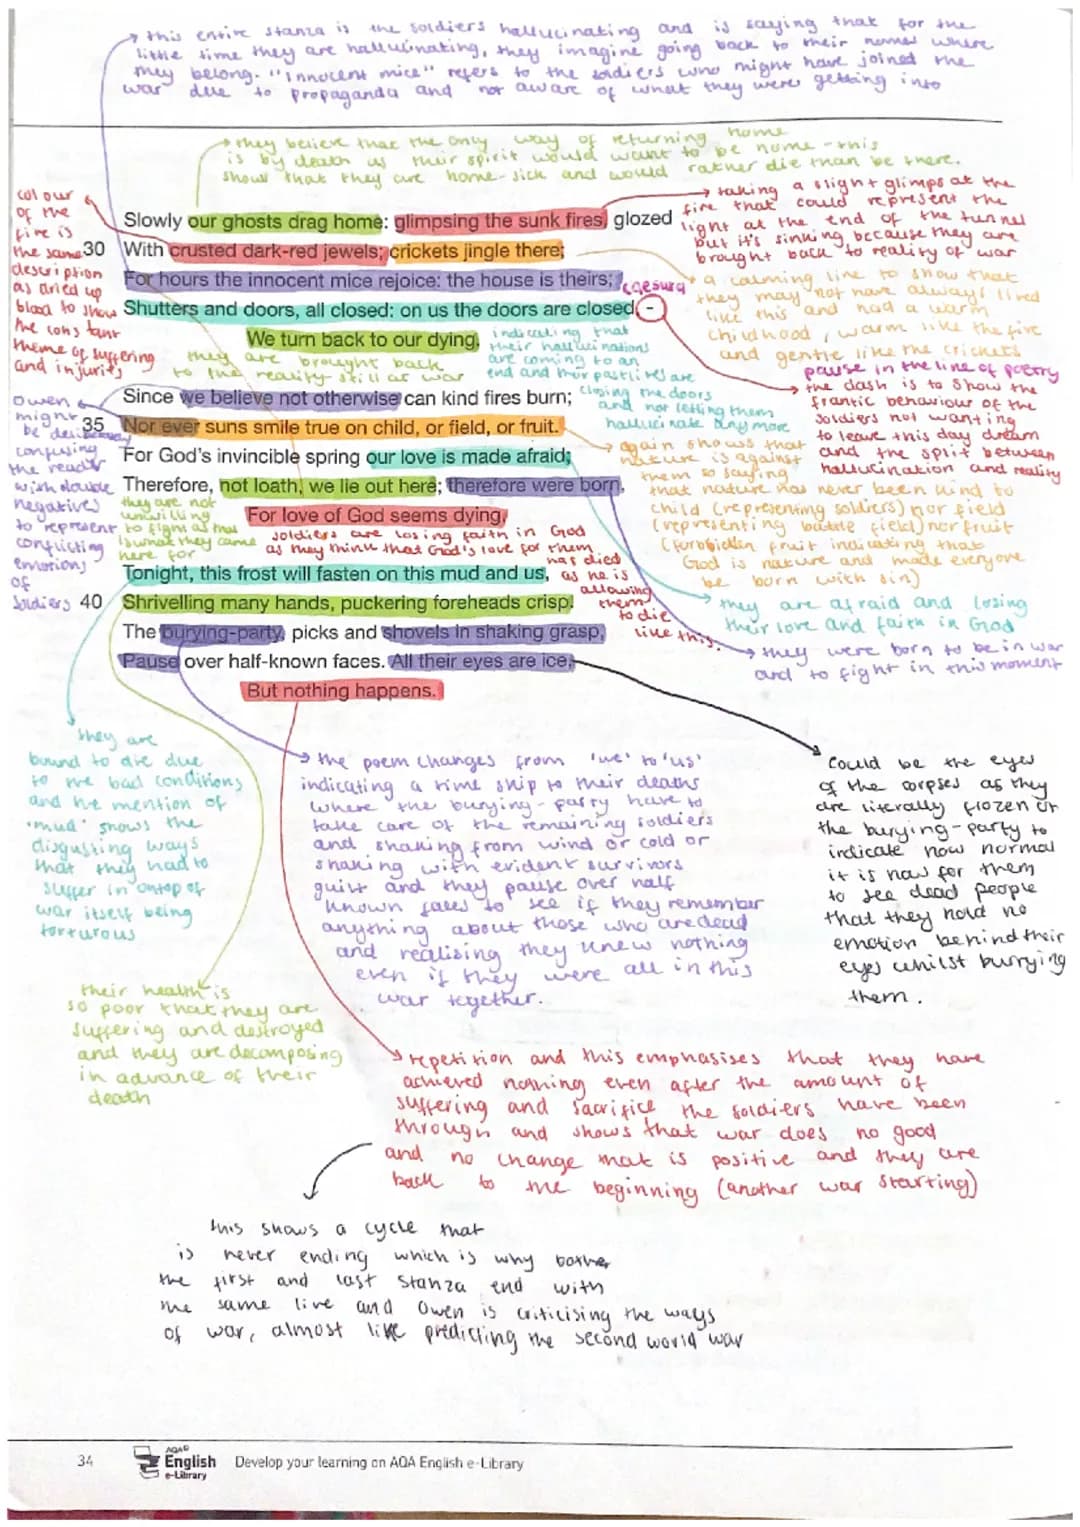 this entire stanza is the soldiers hallucinating and is saying that for the
little time they are hallucinating, they imagine going back to their homes where
they belong. "innocent mice" refers to the soldiers who might have joined the
war due to propaganda and not aware of what they were getting into
they believe that the only way of returning home
is by death as their spirit would want to be home - this
show that they are home-sick and would rather die than be there.
colour
of the
fire is
the same
description
as dried up
blood to show
the constant
theme of suffering
and injury
Slowly our ghosts drag home: glimpsing the sunk fires, glozed
30 With crusted dark-red jewels; crickets jingle there;
For hours the innocent mice rejoice: the house is theirs;
Shutters and doors, all closed: on us the doors are closed, -
We turn back to our dying.
taking a slight glimps at the
fire that could represent the
light at the end of the tunnel
but it's sinking because they are
brought back to reality of war
caesura
a calming line to show that
they may not have always lived
like this and had a warm
childhood, warm like the fire
and gentle like the crickets
indicating that
their hallucinations
are coming to an
end and their past lives are
closing the doors
and not letting them
hallucinate anymore
they are brought back
to the reality still at war
pause in the line of poetry
the dash is to show the
frantic behaviour of the
soldiers not wanting
to leave this day dream
and the split between
hallucination and reality
Since we believe not otherwise can kind fires burn;
35 Nor ever suns smile true on child, or field, or fruit.
For God's invincible spring our love is made afraid;
Therefore, not loath, we lie out here; therefore were born,
For love of God seems dying.
Owen
might
be deliberately
confusing
the reader
with double
negatives
to represent
conflicting
emotions
of
soldiers
they are not
unwilling
to fight as that
is what they came
here for
soldiers are losing faith in God
as they think that God's love for them
has died
as he is
allowing
them
to die
like this.
again shows that
nature is against
them so saying
that nature has never been kind to
child (representing soldiers) nor field
(representing battle field) nor fruit
(forobidden fruit indicating that
God is nature and made everyone
be born with sin)
they are afraid and losing
their love and faith in God
they were born to be in war
and to fight in this moment
Tonight, this frost will fasten on this mud and us,
40 Shrivelling many hands, puckering foreheads crisp.
The burying-party, picks and shovels in shaking grasp,
Pause over half-known faces. All their eyes are ice,
But nothing happens.
they are
bound to die due
to the bad conditions
and he mention of
'mud' shows the
disgusting ways
that they had to
suffer in ontop of
war itself being
torturous
the poem changes from 'we' to 'us'
indicating a time skip to their deaths
where the burying-party have to
take care of the remaining soldiers
and shaking from wind or cold or
shaking with evident survivors
guilt and they pause over half
known faces to see if they remember
anything about those who are dead
and realising they knew nothing
even if they were all in this
war together.
could be the eyes
of the corpses as they
are literally frozen or
the burying-party to
indicate how normal
it is now for them
to see dead people
that they hold no
emotion behind their
eyes whilst burrying
them.
their health is
so poor that they are
suffering and destroyed
and they are decomposing
in advance of their
death
repetition and this emphasises that they have
achieved nothing even after the amount of
suffering and sacrifice the soldiers have been
through and shows that war does no good
and no change that is positive and they are
back to the beginning (another war starting)
this shows a cycle that
is never ending which is why bother
the first and last stanza end with
the same line and Owen is criticising the ways
of war, almost like predicting the second world war
34
AQA
English
e-Library
Develop your learning on AQA English e-Library